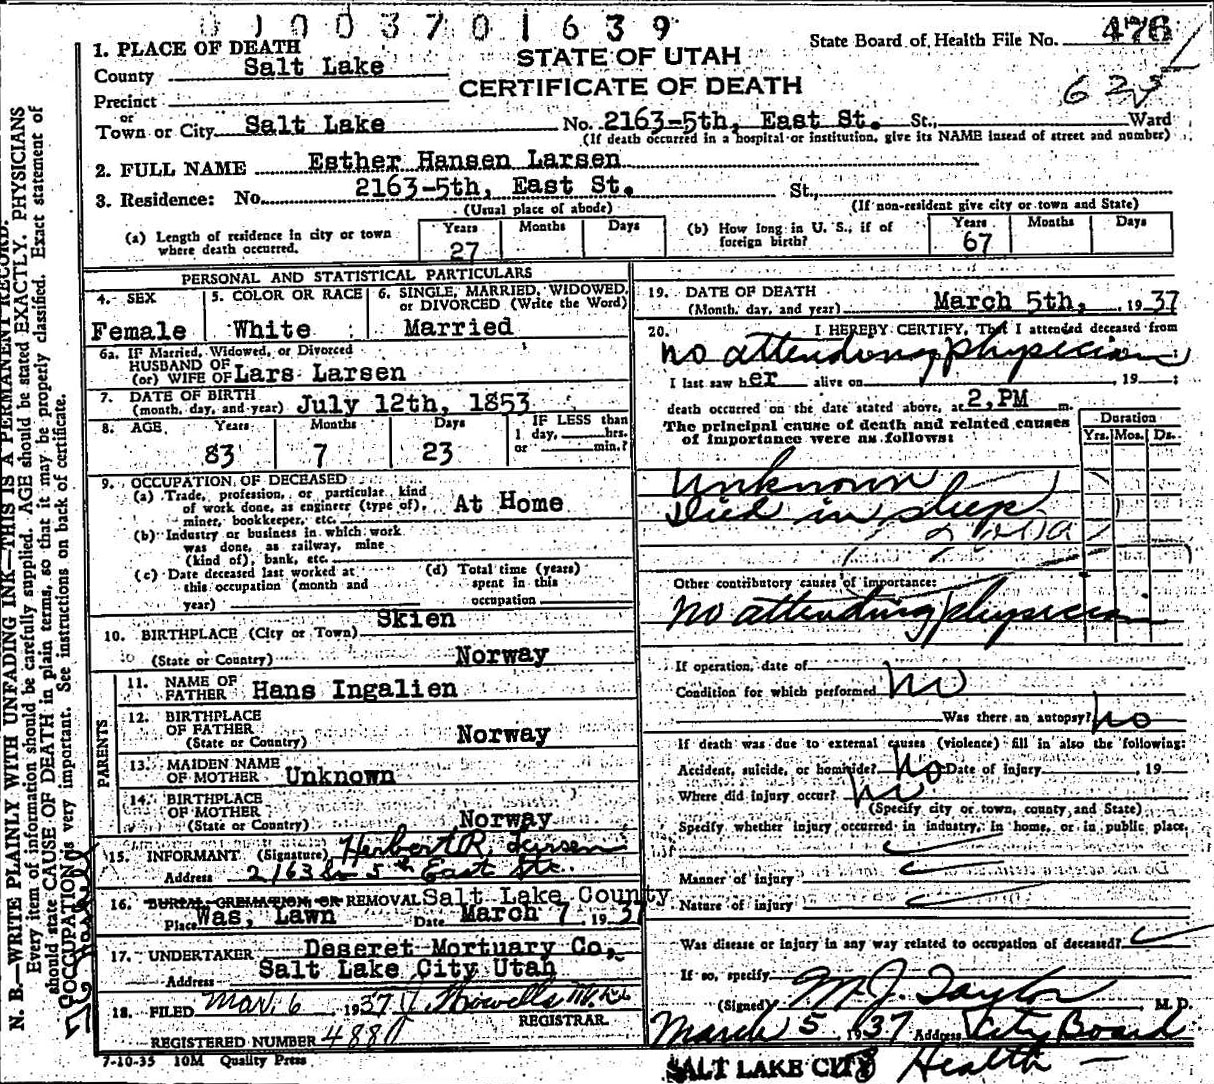 01003701639
1. PLACE OF DEATH
County Salt Lake
Precinct
or
Town or City Salt Lake
STATE OF UTAH
CERTIFICATE OF DEATH
State Board of Health File No. 476
No. 2163-5th, East St. St., Ward
(If death occurred in a hospital or institution, give its NAME instead of street and number)
2. FULL NAME Esther Hansen Larsen
3. Residence: No. 2163-5th, East St. St.,
(Usual place of abode)
(If non-resident give city or town and State)
(a) Length of residence in city or town where death occurred. Years 27 Months Days
(b) How long in U. S., if of foreign birth? Years 67 Months Days
PERSONAL AND STATISTICAL PARTICULARS
4. SEX Female
5. COLOR OR RACE White
6. SINGLE, MARRIED, WIDOWED, or DIVORCED (Write the Word) Married
6a. IF Married, Widowed, or Divorced
HUSBAND OF
(or) WIFE OF Lars Larsen
7. DATE OF BIRTH
(month, day, and year) July 12th, 1853
8. AGE Years 83 Months 7 Days 23
IF LESS than
1 day, hrs.
or min.?
9. OCCUPATION OF DECEASED
(a) Trade, profession, or particular kind
of work done, as engineer (type of),
miner, bookkeeper, etc. At Home
(b) Industry or business in which work
was done, as railway, mine
(kind of), bank, etc.
(c) Date deceased last worked at
this occupation (month and
year)
(d) Total time (years)
spent in this
occupation
10. BIRTHPLACE (City or Town) Skien
(State or Country) Norway
PARENTS
11. NAME OF
FATHER Hans Ingalien
12. BIRTHPLACE
OF FATHER
(State or Country) Norway
13. MAIDEN NAME
OF MOTHER Unknown
14. BIRTHPLACE
OF MOTHER
(State or Country) Norway
15. INFORMANT (Signature) Herbert R. Larsen
Address 2163 So 5th East St.
16. BURIAL, CREMATION, OR REMOVAL Salt Lake County
Place Was, Lawn Date March 7 1937
17. UNDERTAKER Deseret Mortuary Co,
Address Salt Lake City Utah
18. FILED Mar. 6 1937
REGISTRAR
REGISTERED NUMBER
7-10-35 10M Quality Press
19. DATE OF DEATH
(Month, day, and year) March 5th, 1937
20. I HEREBY CERTIFY, That I attended deceased from
no attending physician
I last saw her alive on , 19 ;
death occurred on the date stated above, at 2, PM m.
The principal cause of death and related causes
of importance were as follows:
Duration
Yrs. Mos. Ds.
Unknown
Died in sleep
Other contributory causes of importance:
no attending physician
If operation, date of
Condition for which performed no
Was there an autopsy? no
If death was due to external causes (violence) fill in also the following:
Accident, suicide, or homicide? no Date of injury , 19
Where did injury occur? no
(Specify city or town, county, and State)
Specify whether injury occurred in industry, in home, or in public place.
Manner of injury
Nature of injury
Was disease or injury in any way related to occupation of deceased?
If so, specify
(Signed) M. J. Taylor M. D.
March 5 1937 Address City Board
Health
SALT LAKE CITY
N. B.—WRITE PLAINLY WITH UNFADING INK—THIS IS A PERMANENT RECORD.
Every item of information should be carefully supplied. AGE should be stated EXACTLY. PHYSICIANS
should state CAUSE OF DEATH in plain terms, so that it may be properly classified. Exact statement of
OCCUPATION is very important. See instructions on back of certificate.